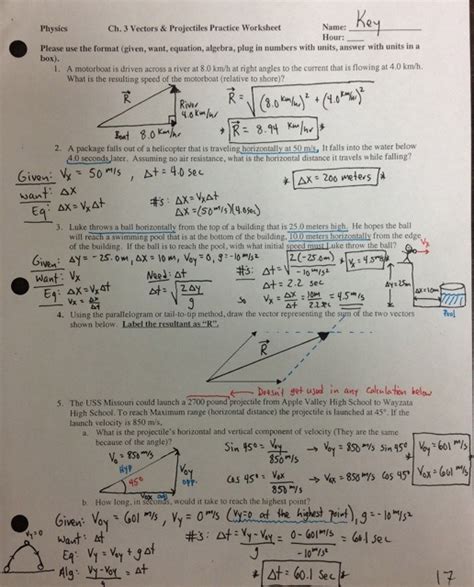 Physics Ch. 3 Vectors & Projectiles Practice Worksheet Name: Key
Hour:
Please use the format (given, want, equation, algebra, plug in numbers with units, answer with units in a box).
1. A motorboat is driven across a river at 8.0 km/h at right angles to the current that is flowing at 4.0 km/h.
What is the resulting speed of the motorboat (relative to shore)?
R
River
4.0 km/hr
Boat 8.0 km/hr
R = √(8.0 km/hr)² + (4.0 km/hr)²
* R = 8.94 km/hr *
2. A package falls out of a helicopter that is traveling horizontally at 50 m/s. It falls into the water below
4.0 seconds later. Assuming no air resistance, what is the horizontal distance it travels while falling?
Given: Vx = 50 m/s, Δt = 4.0 sec
Want: Δx
Eq: Δx = VxΔt
#'s: Δx = VxΔt
Δx = (50 m/s)(4.0sec)
* Δx = 200 meters *
3. Luke throws a ball horizontally from the top of a building that is 25.0 meters high. He hopes the ball
will reach a swimming pool that is at the bottom of the building, 10.0 meters horizontally from the edge
of the building. If the ball is to reach the pool, with what initial speed must Luke throw the ball?
Given: Δy = -25.0m, Δx = 10 m, Voy = 0, g = -10 m/s²
Want: Vx
Eq: Δx = VxΔt
Vx = Δx/Δt
Need: Δt
Δt = √2Δy/g
#'s: Δt = √2(-25.0)/-10 m/s²
Δt = 2.2 sec
so Vx = Δx/Δt = 10m/2.2sec = 4.5 m/s
* Vx = 4.5 m/s *
Vx
Δy = 25m
Δx = 10m
Pool
4. Using the parallelogram or tail-to-tip method, draw the vector representing the sum of the two vectors
shown below. Label the resultant as "R".
R
Doesn't get used in any calculation below
5. The USS Missouri could launch a 2700 pound projectile from Apple Valley High School to Wayzata
High School. To reach Maximum range (horizontal distance) the projectile is launched at 45°. If the
launch velocity is 850 m/s,
a. What is the projectile's horizontal and vertical component of velocity (They are the same
because of the angle)?
Vo = 850 m/s
Hyp
45°
Voy
opp.
Vox adj.
Sin 45° = Voy/850 m/s → Voy = 850 m/s sin 45°
Cos 45° = Vox/850 m/s → Vox = 850 m/s cos 45°
Voy = 601 m/s
Vox = 601 m/s
b. How long, in seconds, would it take to reach the highest point?
Given: Voy = 601 m/s, Vy = 0 m/s (Vy = 0 at the highest point), g = -10 m/s²
Want: Δt
Eq: Vy = Voy + gΔt
Alg: Vy-Voy/g = Δt
#'s: Δt = Vy - Voy/g = 0 - 601 m/s/-10 m/s² = 60.1 sec
* Δt = 60.1 sec *
Vy=0
17